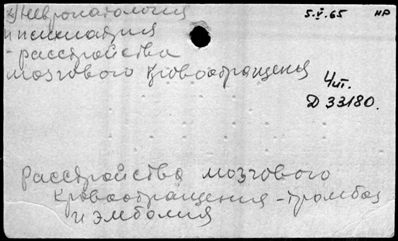 Невропатология
и психиатрия
- расстройства
мозгового кровообращения
5.V.65
НР
Чит.
Д 33180.
Расстройства мозгового
кровообращения - тромбоз
и эмболия